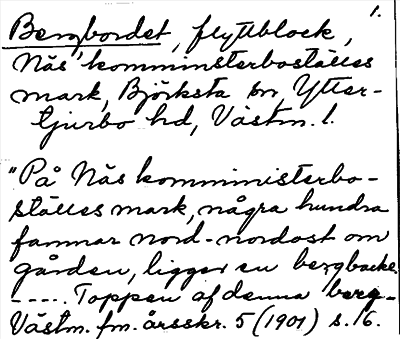 1.
Bergbordet, flyttblock,
Näs komministerboställes
mark, Björksta sn, Ytter-
Tjurbo hd, Västm. l.
"På Näs komministerbo-
ställes mark, några hundra
famnar nord-nordost om
gården, ligger en bergbacke.
----- Toppen af denna berg-
Västm. fm. årsskr. 5 (1901) s. 16.